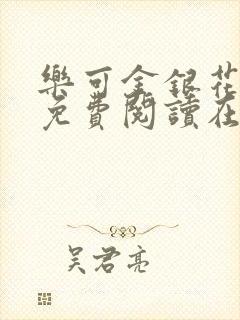 樂可金銀花
免費閱讀在
吳君亮